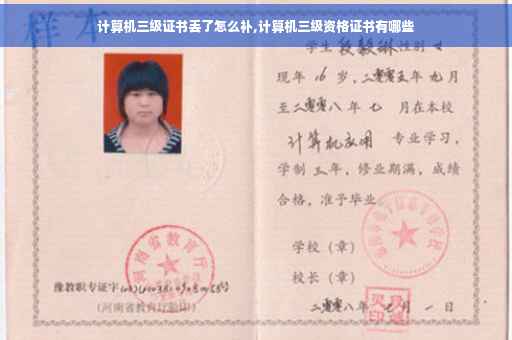 计算机三级证书丢了怎么补,计算机三级资格证书有哪些
样本
学生段毅琳性别女
现年16岁，二零零五年九月
至二零零八年七月在本校
计算机应用专业学习，
学制三年，修业期满，成绩
合格，准予毕业。
学校（章）
校长（章）
二零零八年七月一日
河南省教育厅
豫教职专证字
（河南省教育厅验印）